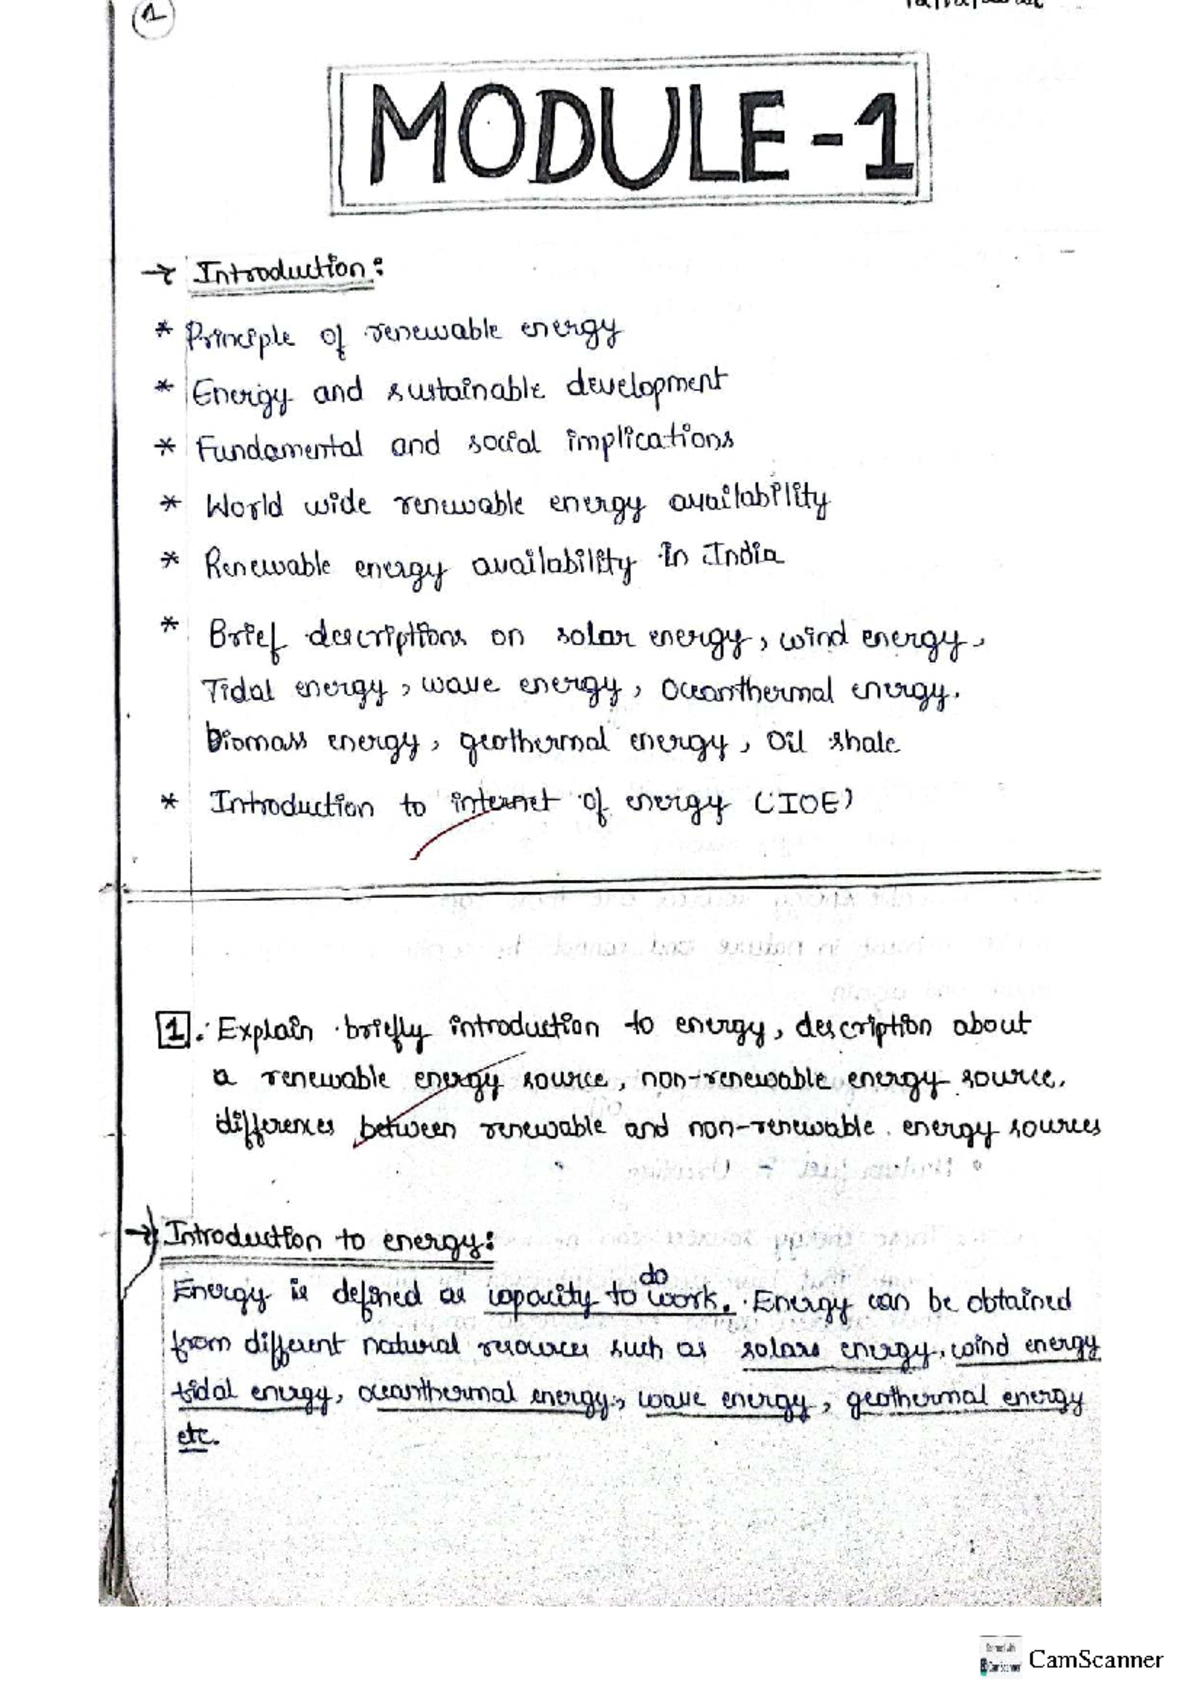 1
MODULE-1
→ Introduction:
* Principle of renewable energy
* Energy and sustainable development
* Fundamental and social implications
* World wide renewable energy availability
* Renewable energy availability in India
* Brief descriptions on solar energy, wind energy,
Tidal energy, wave energy, Oceanthermal energy.
Biomass energy, geothermal energy, Oil shale
* Introduction to internet of energy (IOE)
1. Explain briefly introduction to energy, description about
a renewable energy source, non-renewable energy source.
differences between renewable and non-renewable energy sources
→ Introduction to energy:
Energy is defined as capacity to do work. Energy can be obtained
from different natural resources such as solars energy, wind energy
tidal energy, oceanthermal energy, wave energy, geothermal energy
etc.
CamScanner